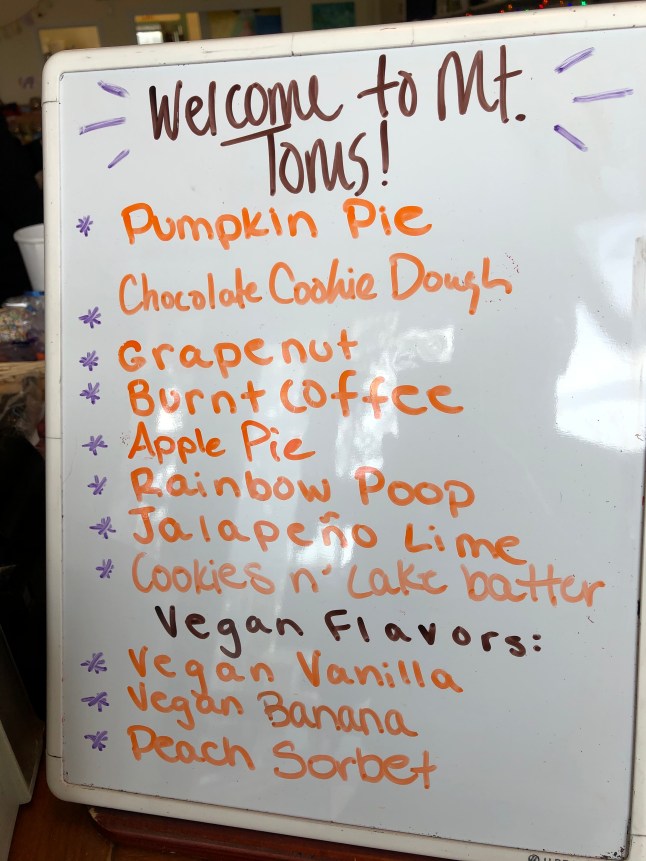 Welcome to Mt.
Toms!
* Pumpkin Pie
* Chocolate Cookie Dough
* Grapenut
* Burnt Coffee
* Apple Pie
* Rainbow Poop
* Jalapeño Lime
* Cookies n' Cake batter
Vegan Flavors:
* Vegan Vanilla
* Vegan Banana
* Peach Sorbet